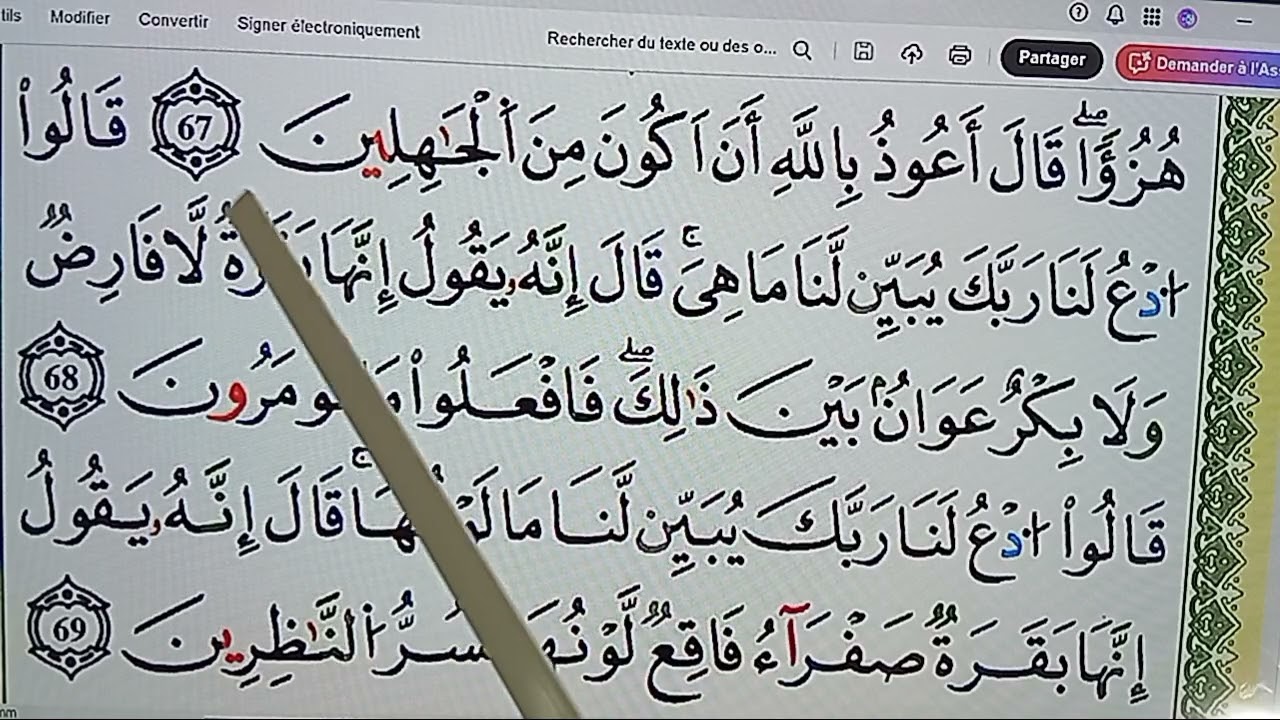 tils Modifier Convertir Signer électroniquement Rechercher du texte ou des o... Partager Demander à l'As
هُزُؤًاۖ قَالَ أَعُوذُ بِاللَّهِ أَنَ اَكُونَ مِنَ ٱلْجَٰهِلِينَ 67 قَالُواْ
ادْعُ لَنَا رَبَّكَ يُبَيِّن لَّنَا مَا هِىَۚ قَالَ إِنَّهُۥ يَقُولُ إِنَّهَا لَّا فَارِضٌ
وَلَا بِكْرٌ عَوَانُۢ بَيْنَ ذَٰلِكَۖ فَافْعَلُواْ مَرُونَ 68
قَالُواْ ادْعُ لَنَا رَبَّكَ يُبَيِّن لَّنَا مَا قَالَ إِنَّهُۥ يَقُولُ
إِنَّهَا بَقَرَةٌ صَفْرَآءُ فَاقِعٌ النَّٰظِرِينَ 69